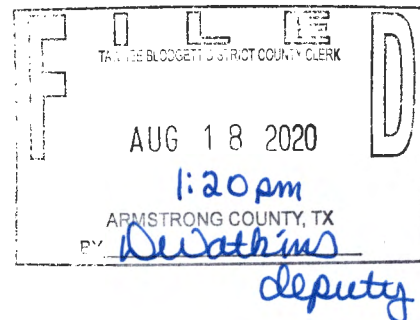 FILED
BLODGETT DISTRICT COUNTY CLERK
AUG 18 2020
1:20pm
ARMSTRONG COUNTY, TX
BY DWatkins
deputy